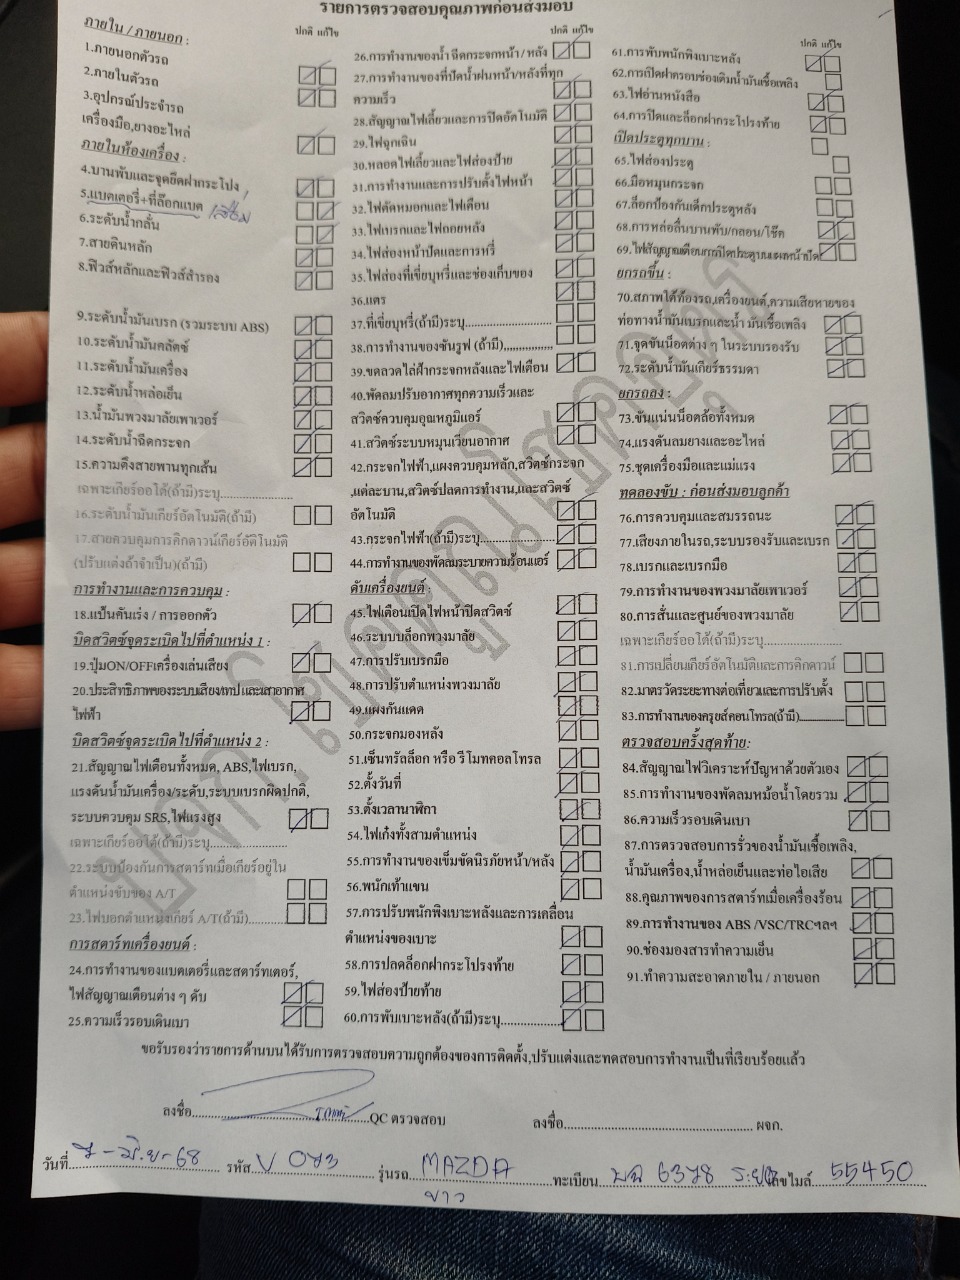 รายการตรวจสอบคุณภาพก่อนส่งมอบ
ภายใน / ภายนอก :
ปกติ แก้ไข
1.ภายนอกตัวรถ
2.ภายในตัวรถ
3.อุปกรณ์ประจำรถ
เครื่องมือ,ยางอะไหล่
ภายในห้องเครื่อง :
4.บานพับและจุดยึดฝากระโปง
5.แบตเตอรี่+ที่ล๊อกแบต
6.ระดับน้ำกลั่น
7.สายดินหลัก
8.ฟิวส์หลักและฟิวส์สำรอง
9.ระดับน้ำมันเบรก (รวมระบบ ABS)
10.ระดับน้ำมันคลัตช์
11.ระดับน้ำมันเครื่อง
12.ระดับน้ำหล่อเย็น
13.น้ำมันพวงมาลัยเพาเวอร์
14.ระดับน้ำฉีดกระจก
15.ความตึงสายพานทุกเส้น
เฉพาะเกียร์ออโต้(ถ้ามี)ระบุ....................
16.ระดับน้ำมันเกียร์อัตโนมัติ(ถ้ามี)
17.สายควบคุมการคิกดาวน์เกียร์อัติโนมัติ
(ปรับแต่งถ้าจำเป็น)(ถ้ามี)
การทำงานและการควบคุม :
18.แป้นคันเร่ง / การออกตัว
บิดสวิตช์จุดระเบิดไปที่ตำแหน่ง 1 :
19.ปุ่มON/OFFเครื่องเล่นเสียง
20.ประสิทธิภาพของระบบเสียง/เทป และเสาอากาศ
ไฟฟ้า
บิดสวิตซ์จุดระเบิดไปที่ตำแหน่ง 2 :
21.สัญญาณไฟเตือนทั้งหมด, ABS,ไฟเบรก,
แรงดันน้ำมันเครื่อง/ระดับ,ระบบเบรกผิดปกติ,
ระบบควบคุม SRS,ไฟแรงสูง
เฉพาะเกียร์ออโต้(ถ้ามี)ระบุ.....................
22.ระบบป้องกันการสตาร์ทเมื่อเกียร์อยู่ใน
ตำแหน่งขับของ A/T
23.ไฟบอกตำแหน่งเกียร์ A/T(ถ้ามี)..........
การสตาร์ทเครื่องยนต์ :
24.การทำงานของแบตเตอรี่และสตาร์ทเตอร์,
ไฟสัญญาณเตือนต่าง ๆ ดับ
25.ความเร็วรอบเดินเบา
ปกติ แก้ไข
26.การทำงานของน้ำ ฉีดกระจกหน้า / หลัง
27.การทำงานของที่ปัดน้ำฝนหน้า/หลังที่ทุก
ความเร็ว
28.สัญญาณไฟเลี้ยวและการปิดอัตโนมัติ
29.ไฟฉุกเฉิน
30.หลอดไฟเลี้ยวและไฟส่องป้าย
31.การทำงานและการปรับตั้งไฟหน้า
32.ไฟตัดหมอกและไฟเตือน
33.ไฟเบรกและไฟถอยหลัง
34.ไฟส่องหน้าปัดและการหรี่
35.ไฟส่องที่เขี่ยบุหรี่และช่องเก็บของ
36.แตร
37.ที่เขี่ยบุหรี่(ถ้ามี)ระบุ........................
38.การทำงานของซันรูฟ (ถ้ามี)...............
39.ขดลวดไล่ฝ้ากระจกหลังและไฟเตือน
40.พัดลมปรับอากาศทุกความเร็วและ
สวิตซ์ควบคุมอุณหภูมิแอร์
41.สวิตซ์ระบบหมุนเวียนอากาศ
42.กระจกไฟฟ้า,แผงควบคุมหลัก,สวิตซ์กระจก
,แต่ละบาน,สวิตซ์ปลดการทำงาน,และสวิตซ์
อัตโนมัติ
43.กระจกไฟฟ้า(ถ้ามี)ระบุ......................
44.การทำงานของพัดลมระบายความร้อนแอร์
ดับเครื่องยนต์ :
45.ไฟเตือนเปิดไฟหน้าปิดสวิตช์
46.ระบบบล็อกพวงมาลัย
47.การปรับเบรกมือ
48.การปรับตำแหน่งพวงมาลัย
49.แผงกันแดด
50.กระจกมองหลัง
51.เซ็นทรัลล็อก หรือ รีโมทคอลโทรล
52.ตั้งวันที่
53.ตั้งเวลานาฬิกา
54.ไฟเก๋งทั้งสามตำแหน่ง
55.การทำงานของเข็มขัดนิรภัยหน้า/หลัง
56.พนักเท้าแขน
57.การปรับพนักพิงเบาะหลังและการเคลื่อน
ตำแหน่งของเบาะ
58.การปลดล็อกฝากระโปงท้าย
59.ไฟส่องป้ายท้าย
60.การพับเบาะหลัง(ถ้ามี)ระบุ..................
ปกติ แก้ไข
61.การพับพนักพิงเบาะหลัง
62.การเปิดฝาครอบช่องเติมน้ำมันเชื้อเพลิง
63.ไฟอ่านหนังสือ
64.การปิดและล็อกฝากระโปรงท้าย
เปิดประตูทุกบาน :
65.ไฟส่องประตู
66.มือหมุนกระจก
67.ล็อกป้องกันเด็กประตูหลัง
68.การหล่อลื่นบานพับ/กลอน/โช๊ค
69.ไฟสัญญาณเตือนการปิดประตูบนแผงหน้าปัด
ยกรถขึ้น :
70.สภาพใต้ท้องรถ,เครื่องยนต์,ความเสียหายของ
ท่อทางน้ำมันเบรกและน้ำ มันเชื้อเพลิง
71.จุดขันน็อตต่าง ๆ ในระบบรองรับ
72.ระดับน้ำมันเกียร์ธรรมดา
ยกรถลง :
73.ขันแน่นน็อตล้อทั้งหมด
74.แรงดันลมยางและอะไหล่
75.ชุดเครื่องมือและแม่แรง
ทดลองขับ : ก่อนส่งมอบลูกค้า
76.การควบคุมและสมรรถนะ
77.เสียงภายในรถ,ระบบรองรับและเบรก
78.เบรกและเบรกมือ
79.การทำงานของพวงมาลัยเพาเวอร์
80.การสั่นและศูนย์ของพวงมาลัย
เฉพาะเกียร์ออโต้(ถ้ามี)ระบุ.....................
81.การเปลี่ยนเกียร์อัตโนมัติและการคิกดาวน์
82.มาตรวัดระยะทางต่อเที่ยวและการปรับตั้ง
83.การทำงานของครุยส์คอนโทรล(ถ้ามี)...............
ตรวจสอบครั้งสุดท้าย:
84.สัญญาณไฟวิเคราะห์ปัญหาด้วยตัวเอง
85.การทำงานของพัดลมหม้อน้ำโดยรวม
86.ความเร็วรอบเดินเบา
87.การตรวจสอบการรั่วของน้ำมันเชื้อเพลิง,
น้ำมันเครื่อง,น้ำหล่อเย็นและท่อไอเสีย
88.คุณภาพของการสตาร์ทเมื่อเครื่องร้อน
89.การทำงานของ ABS /VSC/TRCฯลฯ
90.ช่องมองสารทำความเย็น
91.ทำความสะอาดภายใน / ภายนอก
ขอรับรองว่ารายการด้านบนได้รับการตรวจสอบความถูกต้องของการติดตั้ง,ปรับแต่งและทดสอบการทำงานเป็นที่เรียบร้อยแล้ว
ลงชื่อ..................QC ตรวจสอบ ลงชื่อ.................... ผจก.
วันที่ 7-มิ.ย-68 รหัส V 073 รุ่นรถ MAZDA ทะเบียน 6378 เลขไมล์ 55450
ขาว